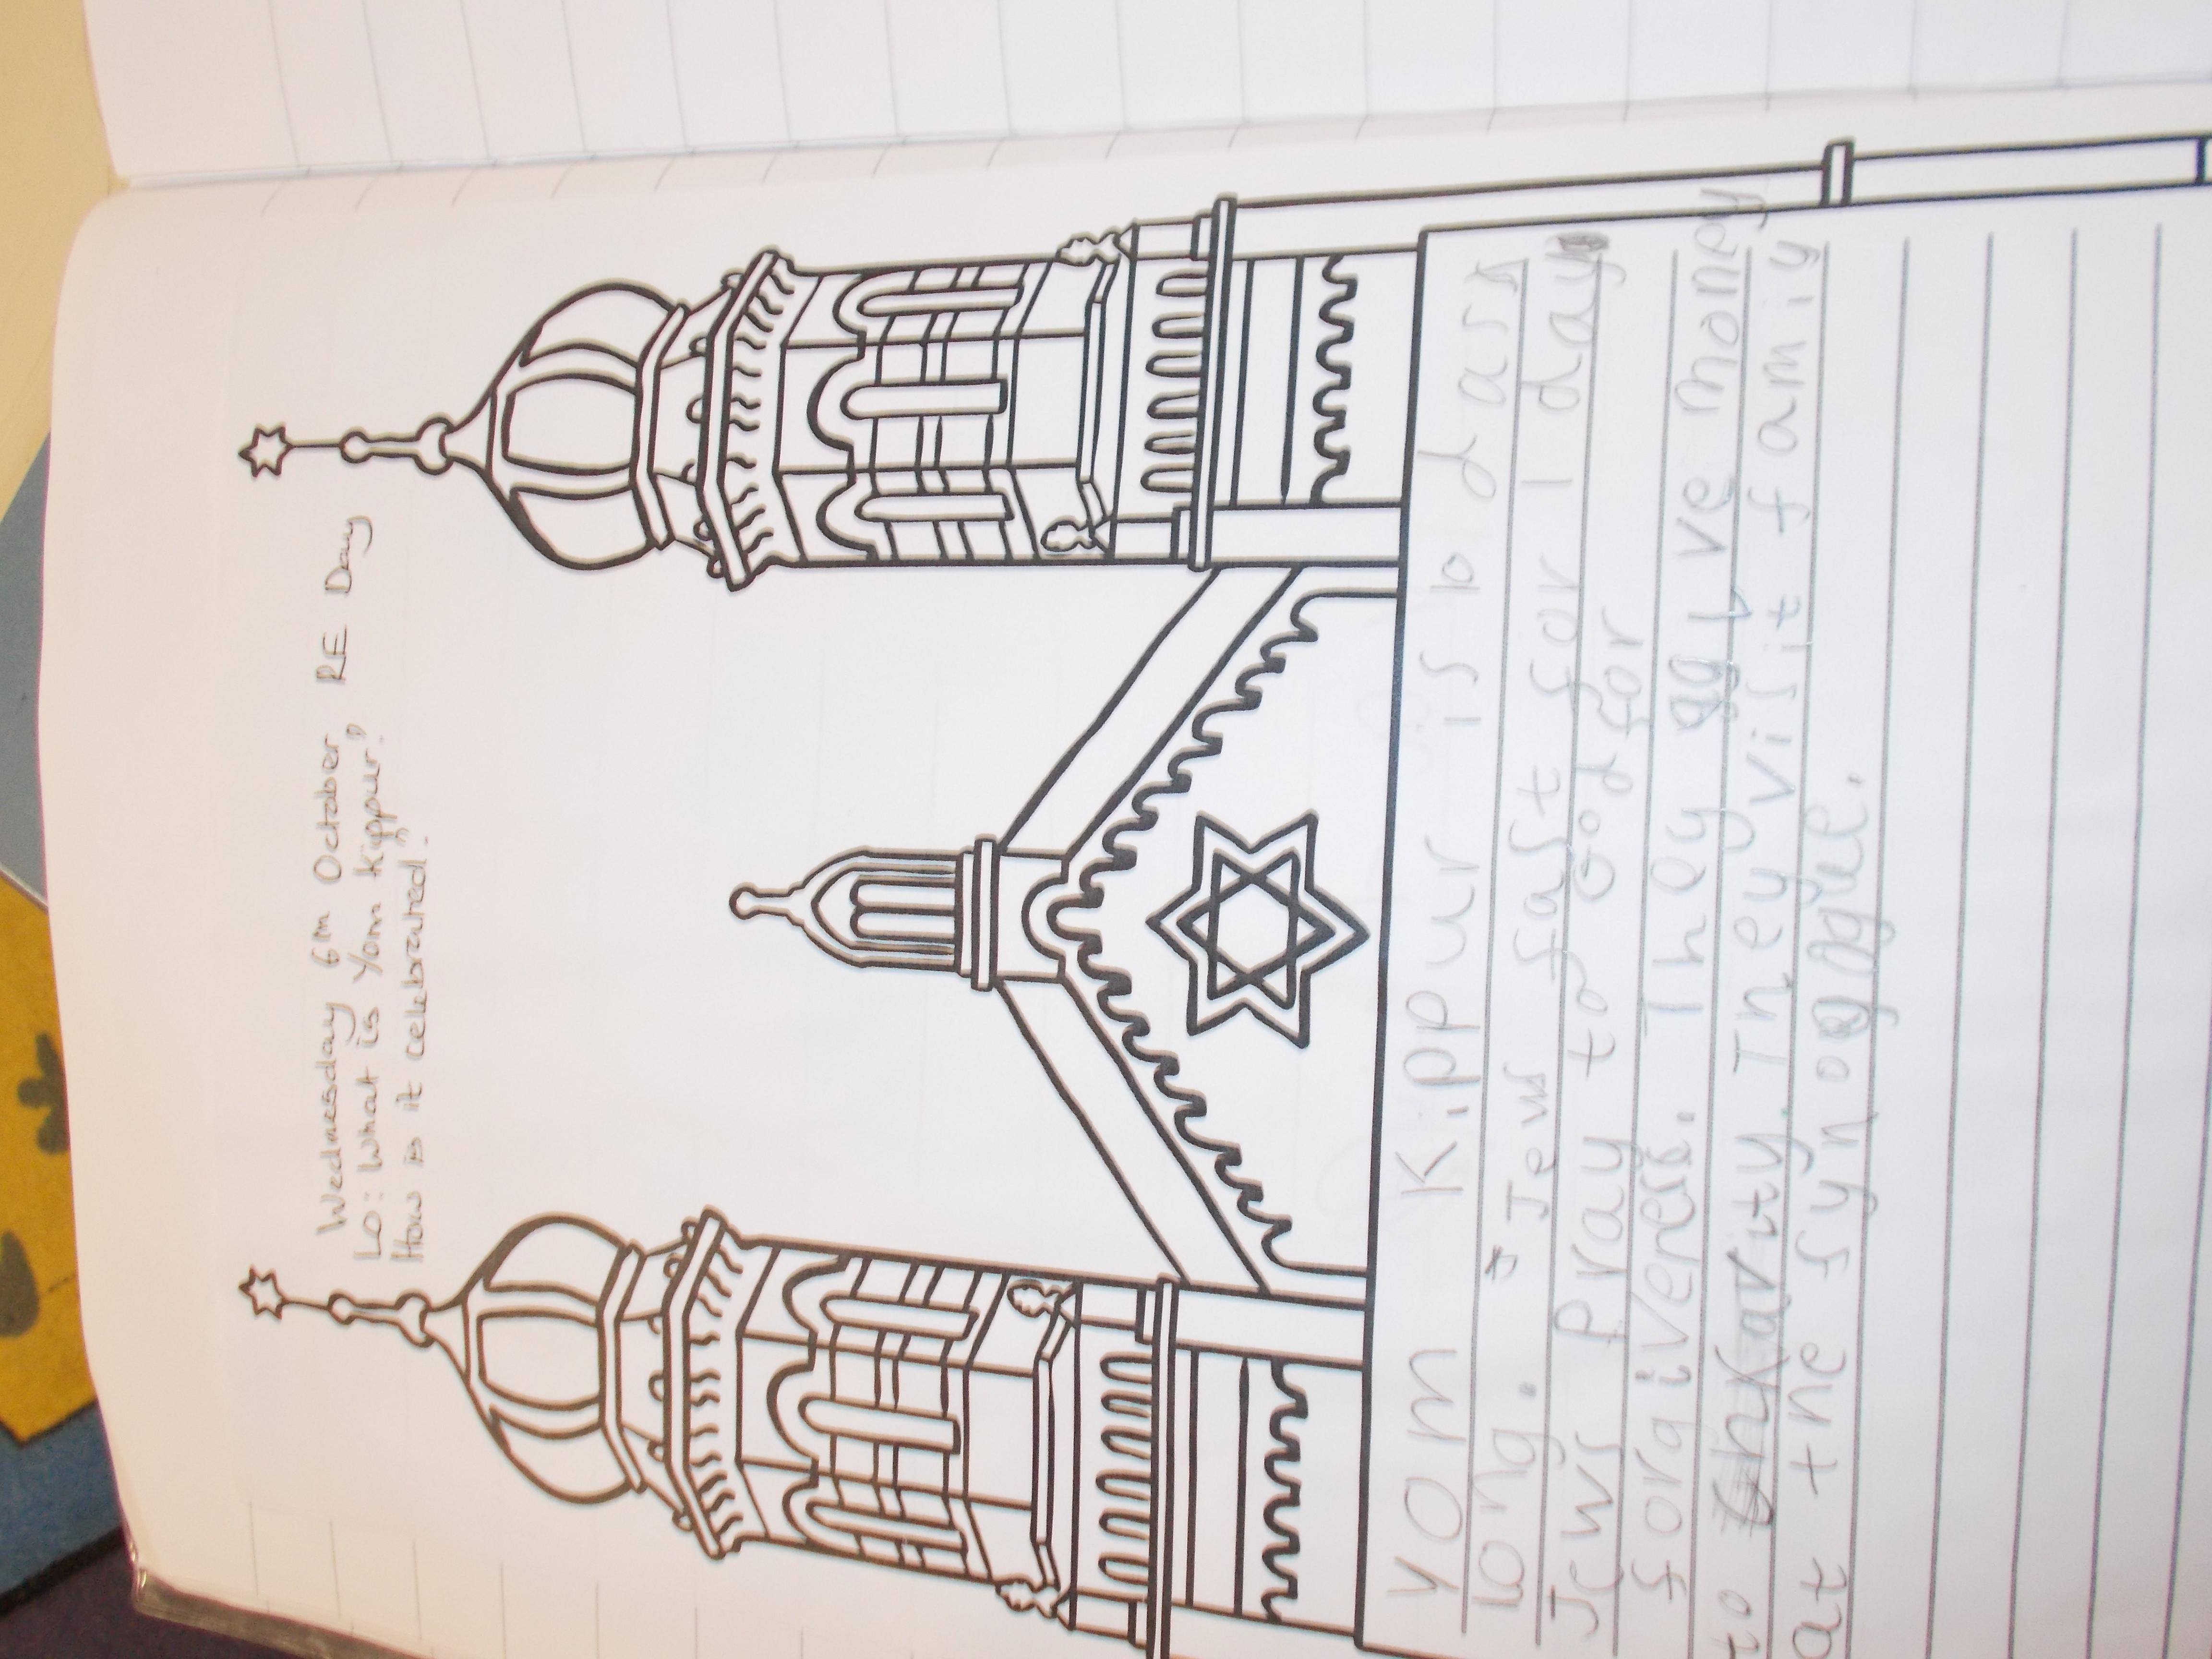 Wednesday 6th October RE Day
LO: What is Yom Kippur?
How is it celebrated?
Yom Kippur is 10 dass
long. Jews fast for 1 day
Jews Pray to God for
forgiveness. They give money
to charity. They visit famiy
at the synogogue.